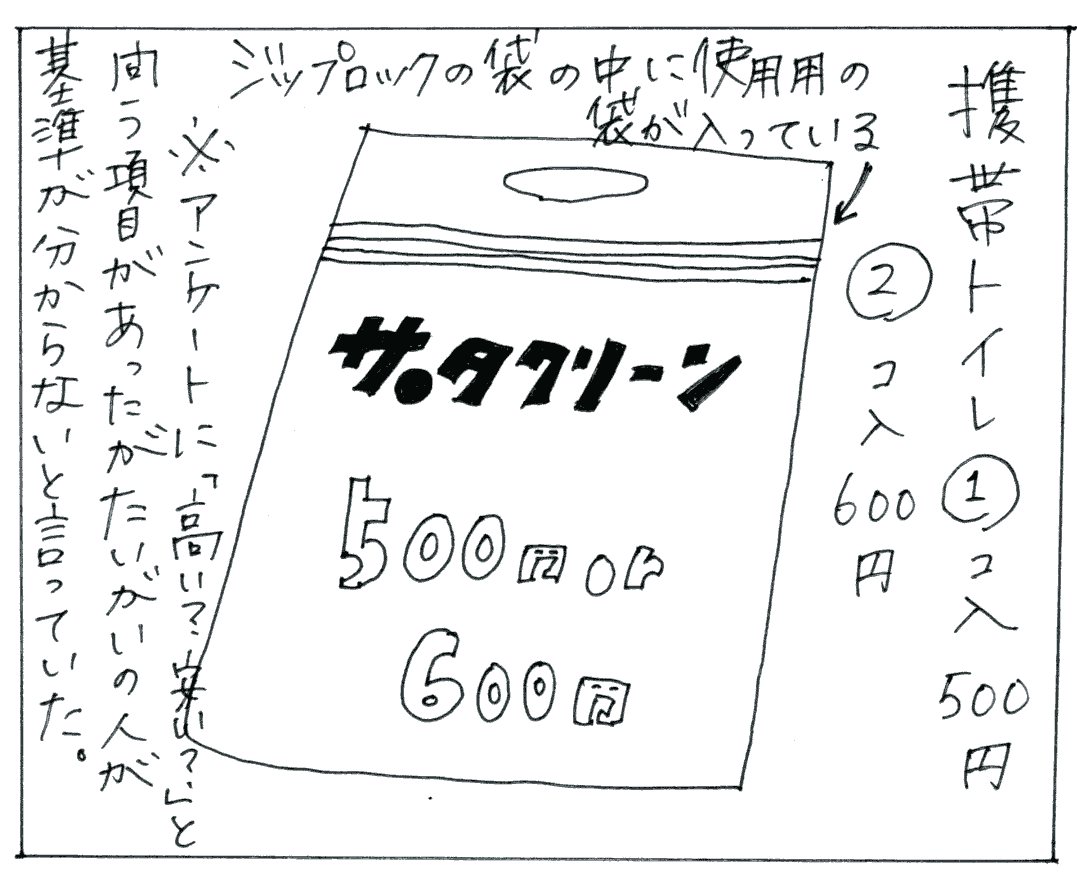 携帯トイレ①コ入500円
②コ入600円
ジップロックの袋の中に使用用の
袋が入っている
サ。タクリーン
500円or
600円
※アンケートに「高い?安い?」と
問う項目があったがたいがいの人が
基準が分からないと言っていた。